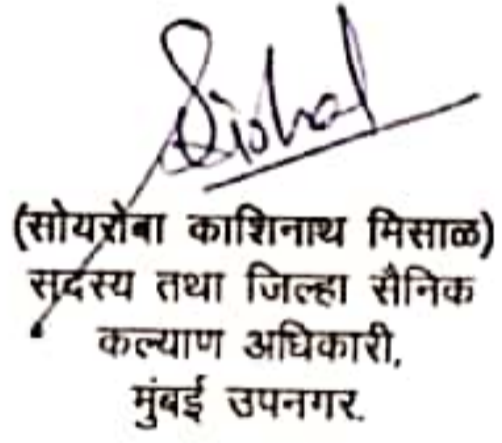 (सोयरोबा काशिनाथ मिसाळ)
सदस्य तथा जिल्हा सैनिक
कल्याण अधिकारी,
मुंबई उपनगर.